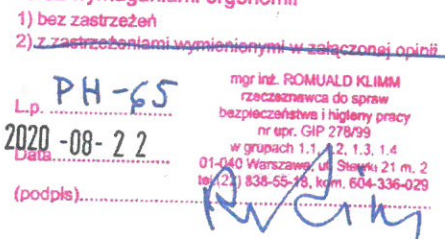 wymaganiami ergonomii
1) bez zastrzeżeń
2) z zastrzeżeniami wymienionymi w załączonej opinii
L.p. PH-65
2020-08-22
Data
(podpis)
mgr inż. ROMUALD KLIMM
rzeczoznawca do spraw
bezpieczeństwa i higieny pracy
nr upr. GIP 278/99
w grupach 1.1, 1.2, 1.3, 1.4
01-040 Warszawa, ul. Stawki 21 m. 2
tel. (22) 838-55-18, kom. 604-336-029